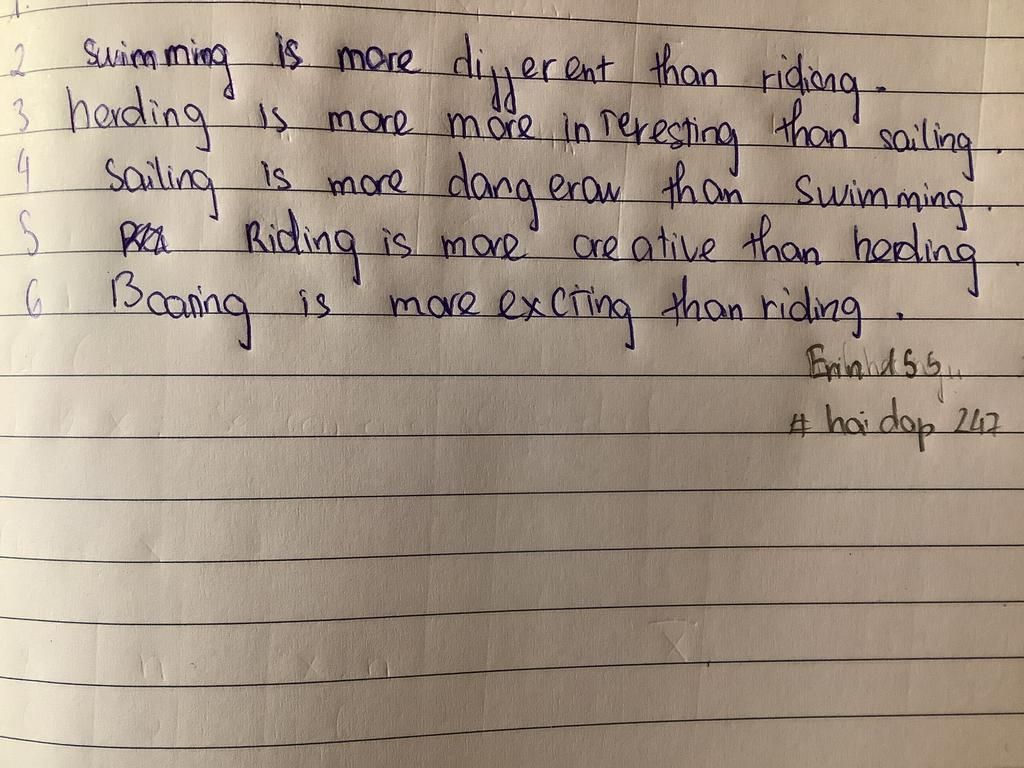 1.
2 swimming is more different than ridiong.
3 herding is more more interesting than sailing.
4 Sailing is more dangerow than swimming.
5 Riding is more creative than herding.
6 Booring is more exciting than riding.
# hoi dap 247